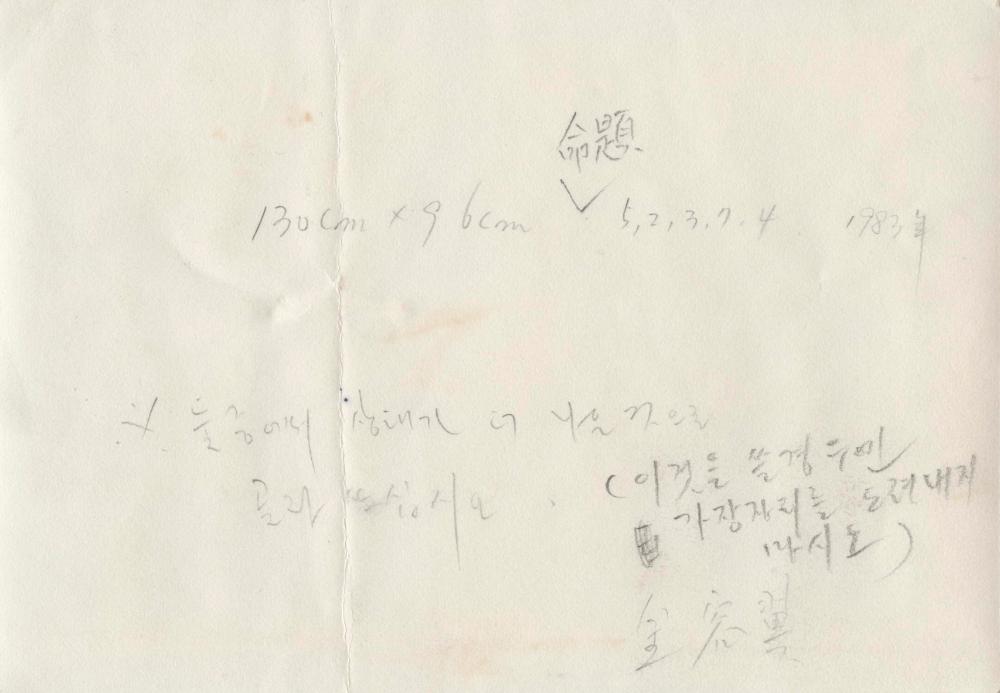 命題
130cm × 96cm ✓ 5,2,3,7.4 1983年
※ 둘중에서 상태가 더 나은 것으로
골라 쓰십시오.
(이것을 쓸경우엔
가장자리를 도려내지
마시오)
金容翼